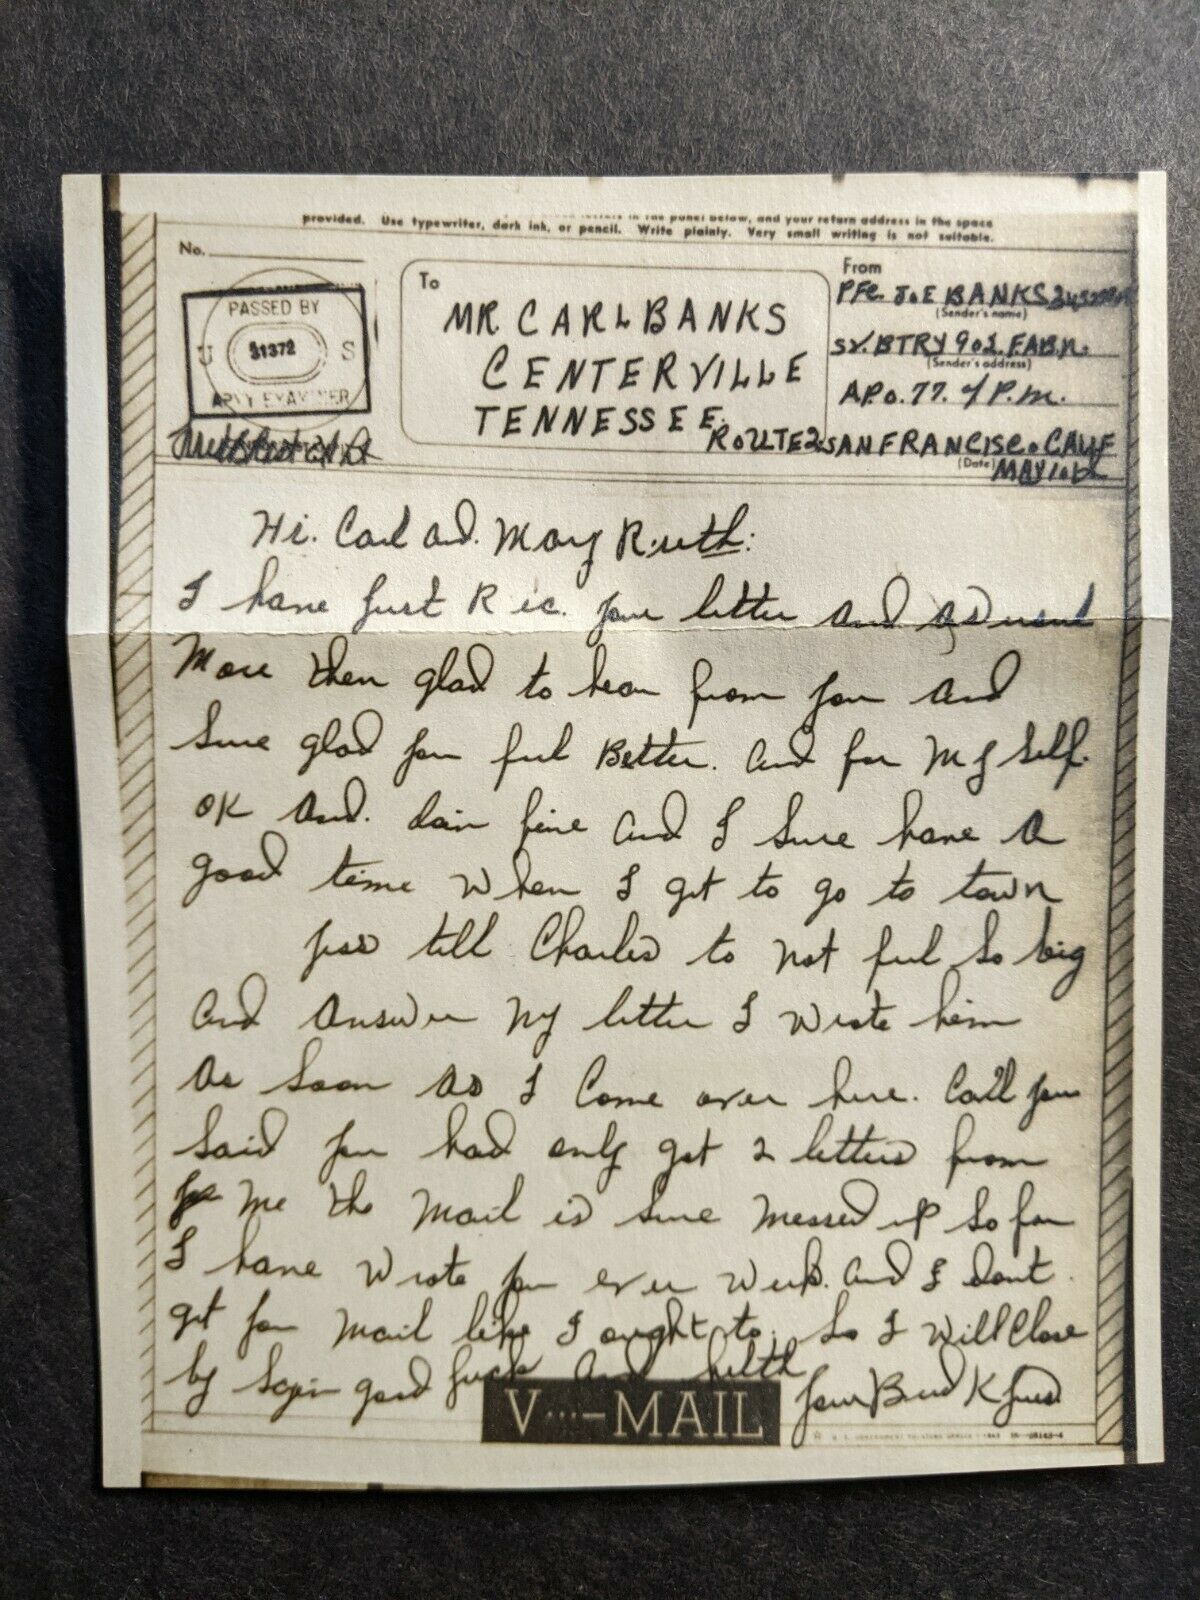 provided. Use typewriter, dark ink, or pencil. Write plainly. Very small writing is not suitable.
letters in the panel below, and your return address in the space
No.
PASSED BY
U 31372 S
ARMY EXAMINER
To
MR. CARL BANKS
CENTERVILLE
TENNESSEE.
ROUTE 2
From
Pfc. JOE BANKS
(Sender's name)
SV. BTRY 901. F.A.B.n.
(Sender's address)
A.P.O. 77. % P.M.
SAN FRANCISCO CALIF
(Date)
MAY 10
Hi. Carl and. Mary Ruth:
I have just Rec. your letter and. as usual
More then glad to hear from you and
Sure glad you feel Better. and for My Self.
OK and. doin fine and I Sure have a
good time when I get to go to town
tell Charles to not feel so big
and answer my letter I wrote him
as soon as I Come over here. Carl you
said you had only got 2 letters from
me the mail is sure messed up so far
I have wrote you ever week. and I dont
get you mail like I ought to. So I will Close
by Sayin good luck and helth
your Bud
V···—MAIL